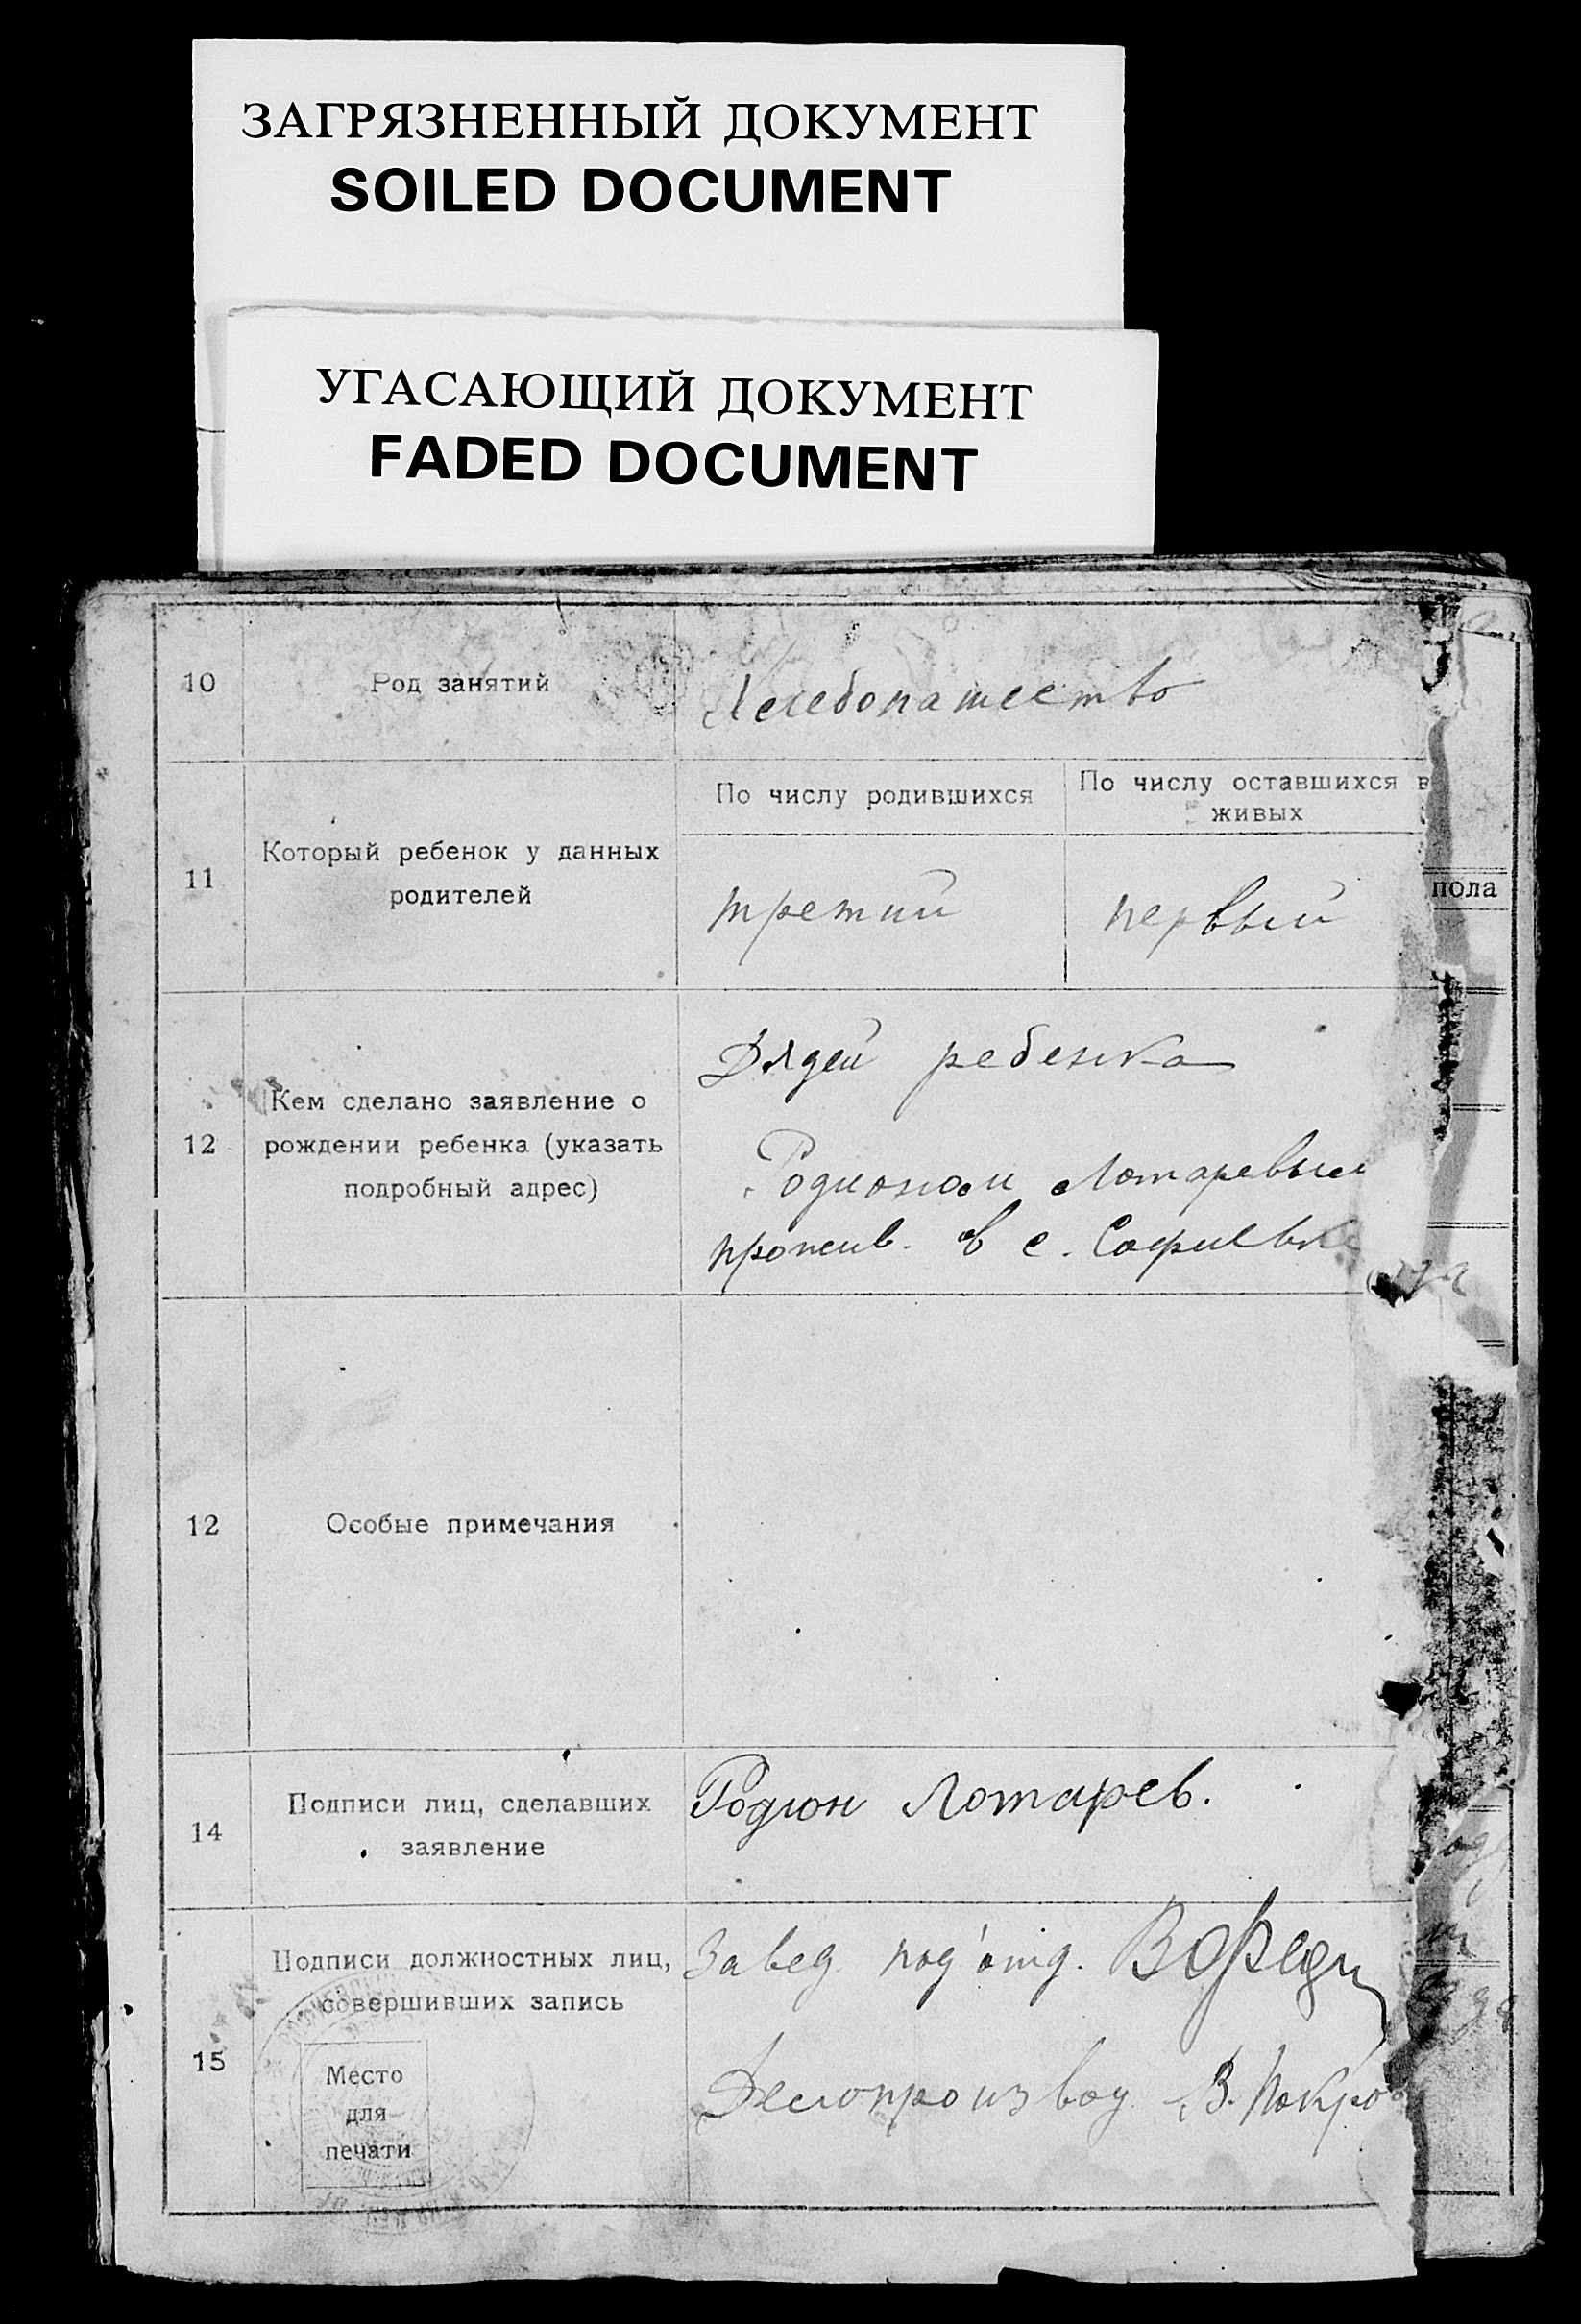 ЗАГРЯЗНЕННЫЙ ДОКУМЕНТ
SOILED DOCUMENT
УГАСАЮЩИЙ ДОКУМЕНТ
FADED DOCUMENT
10 Род занятий Хлебопашество
11 Который ребенок у данных родителей
По числу родившихся
третий
По числу оставшихся в
живых
первый
пола
12 Кем сделано заявление о
рождении ребенка (указать
подробный адрес)
Дядей ребенка
Родионом Лотаревым
прожив. в с. Софиевке
12 Особые примечания
14 Подписи лиц, сделавших
заявление
Родион Лотарев.
15 Подписи должностных лиц,
совершивших запись
Место
для
печати
Завед. под'отд.
Делопроизвод В. Покров